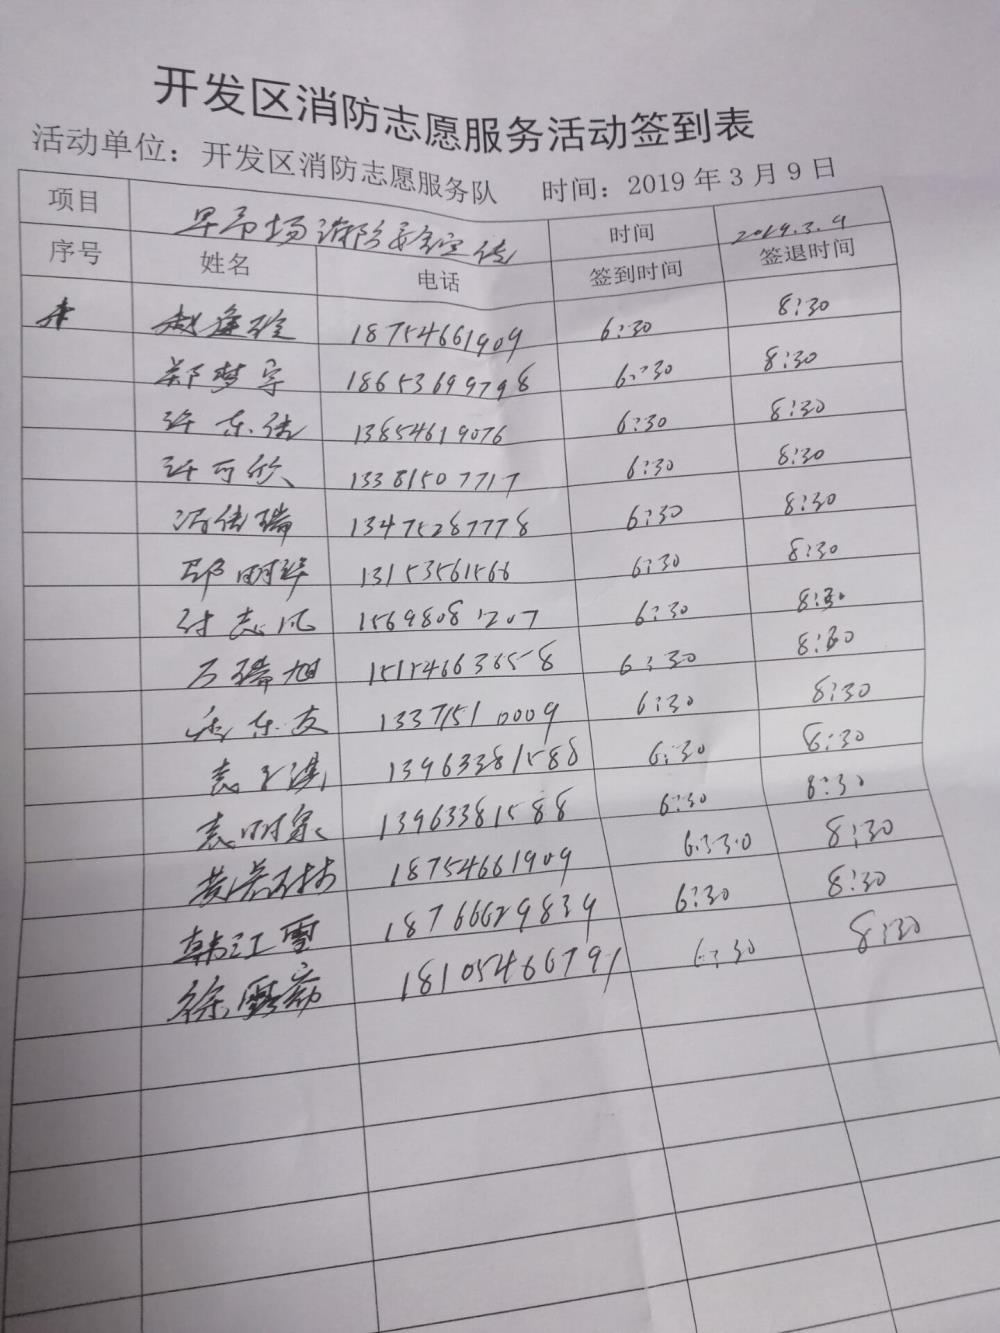 开发区消防志愿服务活动签到表
活动单位：开发区消防志愿服务队 时间：2019年3月9日
项目 早市场消防安全宣传 时间 2019.3.9
序号 姓名 电话 签到时间 签退时间
18754661909 6:30 8:30
郑梦宇 18653699798 6:30 8:30
许东佳 13854619076 6:30 8:30
许可欣 13381507717 6:30 8:30
13475287778 6:30 8:30
邵明华 13153561566 6:30 8:30
付志凡 15698081207 6:30 8:30
万瑞旭 15154663658 6:30 8:30
13371510009 6:30 8:30
13963381588 6:30 8:30
13963381588 6:30 8:30
18754661909 6:330 8:30
韩江雪 18766629839 6:30 8:30
徐露荔 18105466791 6:30 8:30